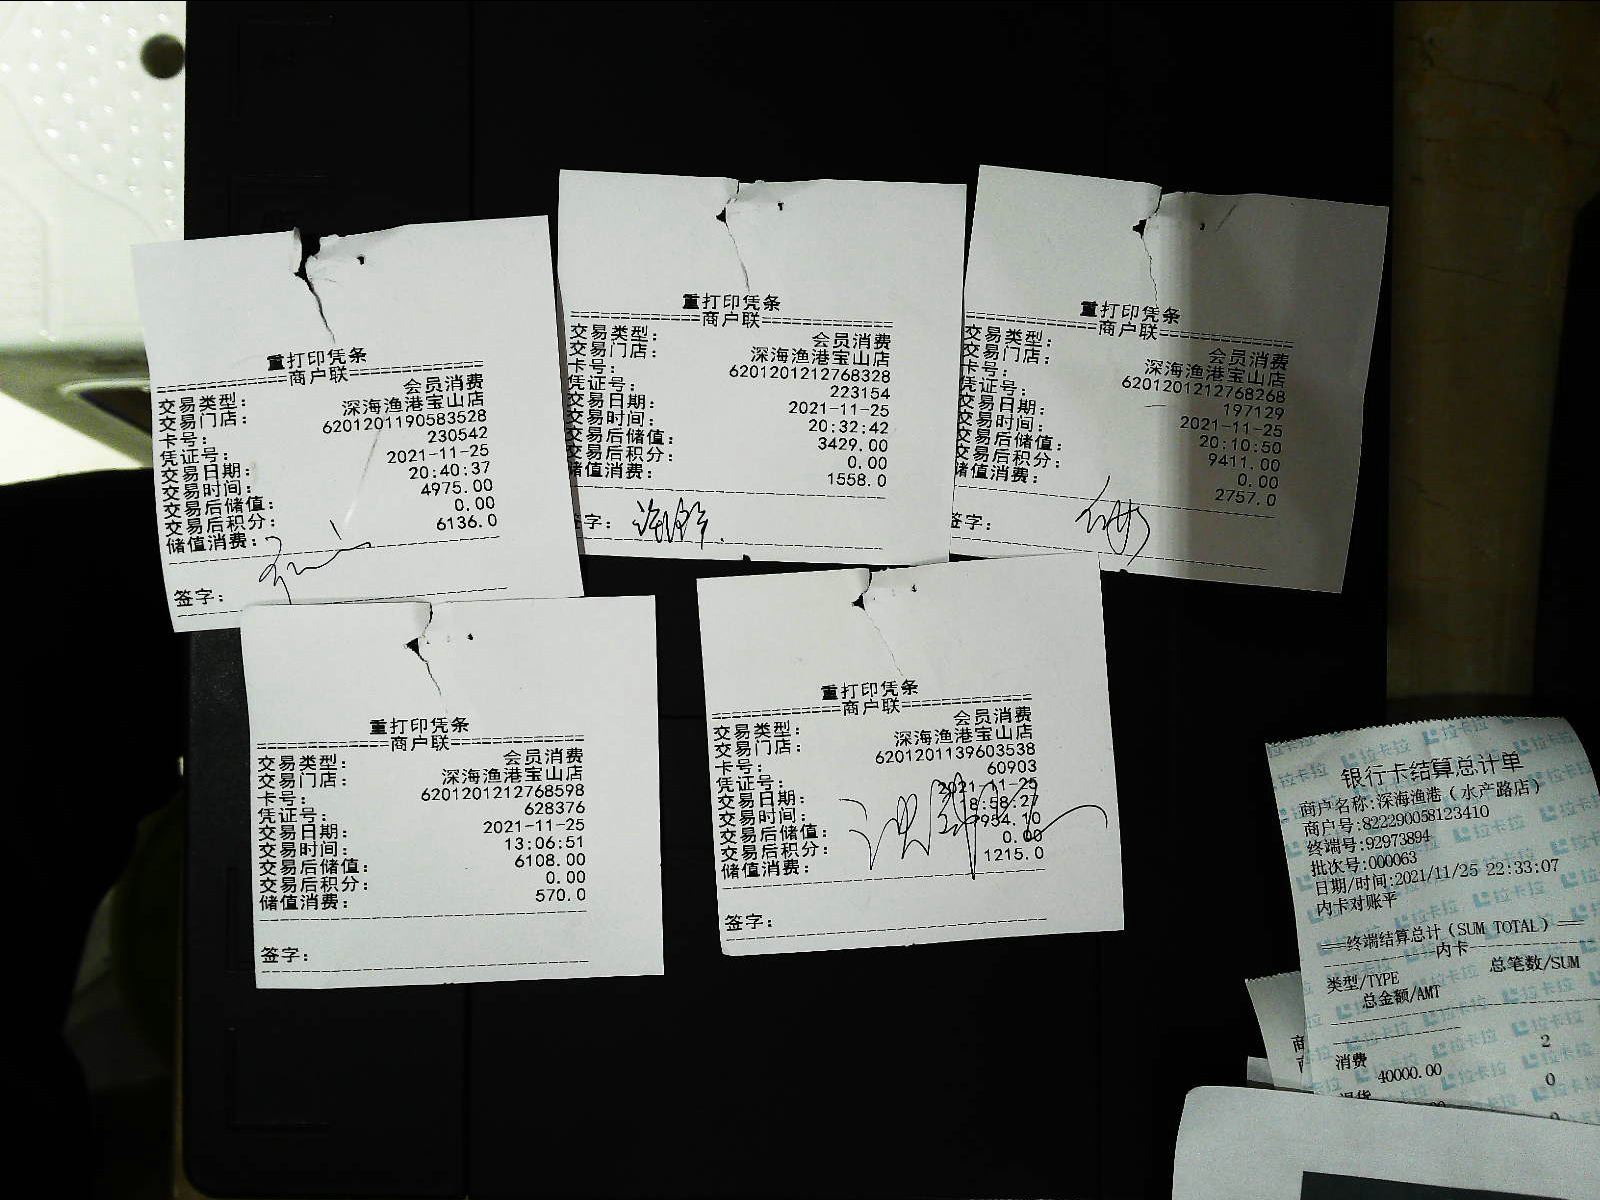 重打印凭条
============商户联============
交易类型: 会员消费
交易门店: 深海渔港宝山店
卡号: 6201201190583528
凭证号: 230542
交易日期: 2021-11-25
交易时间: 20:40:37
交易后储值: 4975.00
交易后积分: 0.00
储值消费: 6136.0
签字:
重打印凭条
============商户联============
交易类型: 会员消费
交易门店: 深海渔港宝山店
卡号: 6201201212768328
凭证号: 223154
交易日期: 2021-11-25
交易时间: 20:32:42
交易后储值: 3429.00
交易后积分: 0.00
储值消费: 1558.0
签字:
重打印凭条
============商户联============
交易类型: 会员消费
交易门店: 深海渔港宝山店
卡号: 6201201212768268
凭证号: 197129
交易日期: 2021-11-25
交易时间: 20:10:50
交易后储值: 9411.00
交易后积分: 0.00
储值消费: 2757.0
签字:
重打印凭条
============商户联============
交易类型: 会员消费
交易门店: 深海渔港宝山店
卡号: 6201201212768598
凭证号: 628376
交易日期: 2021-11-25
交易时间: 13:06:51
交易后储值: 6108.00
交易后积分: 0.00
储值消费: 570.0
签字:
重打印凭条
============商户联============
交易类型: 会员消费
交易门店: 深海渔港宝山店
卡号: 6201201139603538
凭证号: 60903
交易日期: 2021-11-25
交易时间: 18:58:27
交易后储值:
交易后积分: 0.00
储值消费: 1215.0
签字:
银行卡结算总计单
商户名称:深海渔港(水产路店)
商户号:822290058123410
终端号:92973894
批次号:000063
日期/时间:2021/11/25 22:33:07
内卡对账平
===终端结算总计(SUM TOTAL)===
内卡
类型/TYPE 总笔数/SUM
总金额/AMT
消费 2
40000.00
退货 0
拉卡拉